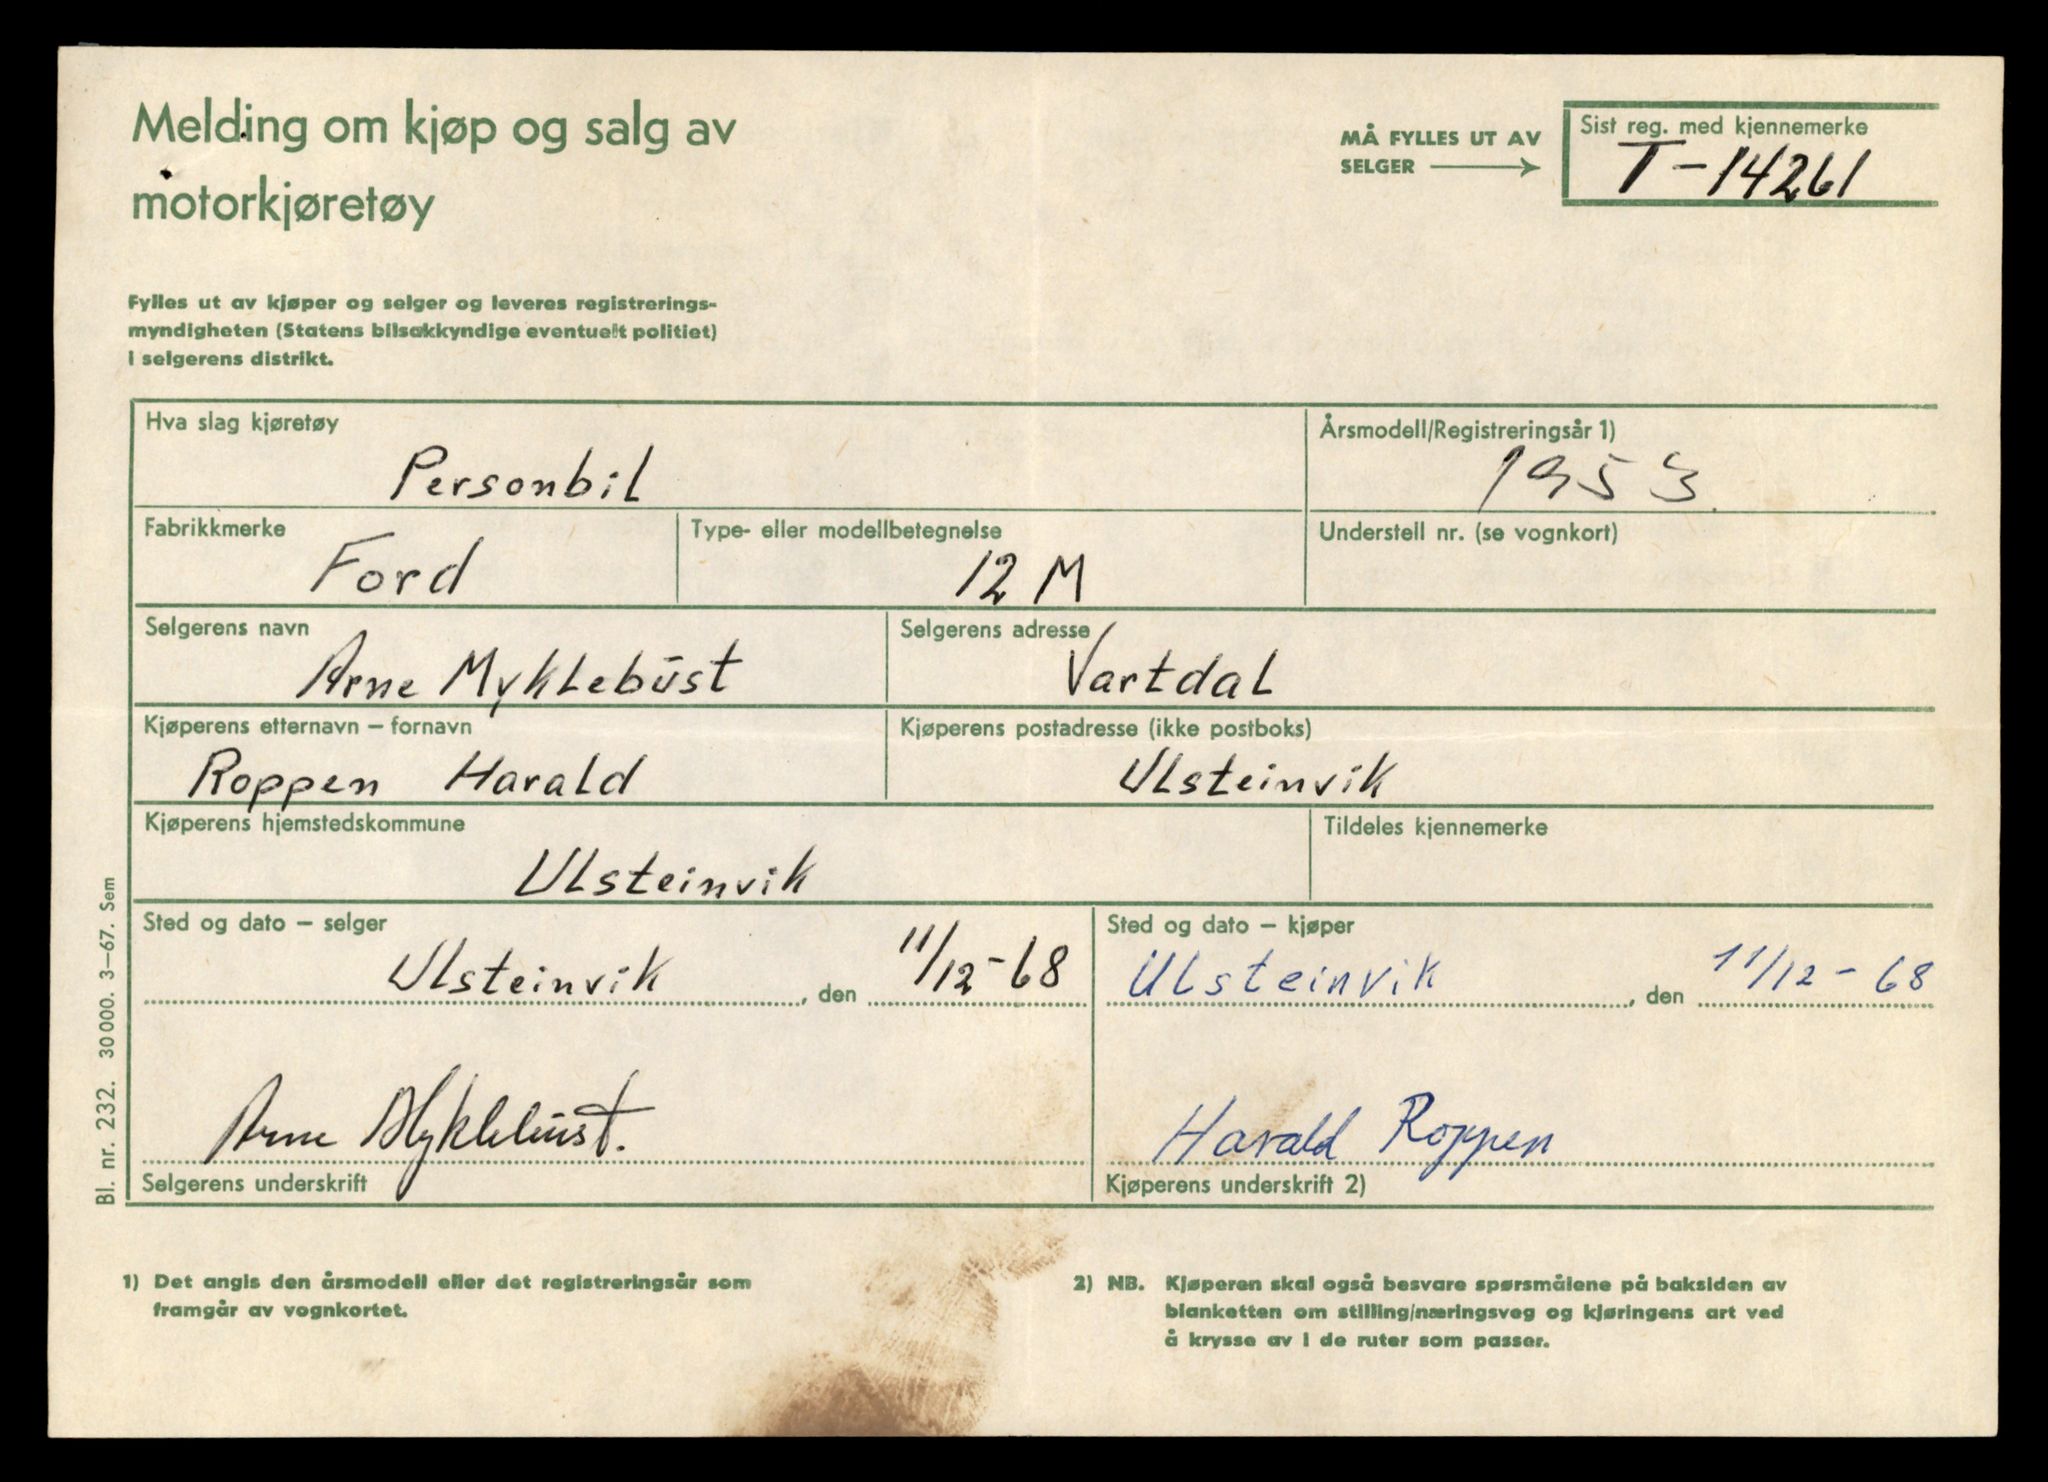 Melding om kjøp og salg av
motorkjøretøy
MÅ FYLLES UT AV
SELGER
Sist reg. med kjennemerke
T-14261
Fylles ut av kjøper og selger og leveres registrerings-
myndigheten (Statens bilsakkyndige eventuelt politiet)
i selgerens distrikt.
Hva slag kjøretøy
Personbil
Årsmodell/Registreringsår 1)
1953
Fabrikkmerke
Ford
Type- eller modellbetegnelse
12 M
Understell nr. (se vognkort)
Selgerens navn
Arne Myklebust
Selgerens adresse
Vartdal
Kjøperens etternavn – fornavn
Roppen Harald
Kjøperens postadresse (ikke postboks)
Ulsteinvik
Kjøperens hjemstedskommune
Ulsteinvik
Tildeles kjennemerke
Sted og dato – selger
Ulsteinvik, den 11/12-68
Sted og dato – kjøper
Ulsteinvik, den 11/12-68
Arne Myklebust.
Selgerens underskrift
Harald Roppen
Kjøperens underskrift 2)
Bl. nr. 232. 30 000. 3–67. Sem
1) Det angis den årsmodell eller det registreringsår som
framgår av vognkortet.
2) NB. Kjøperen skal også besvare spørsmålene på baksiden av
blanketten om stilling/næringsveg og kjøringens art ved
å krysse av i de ruter som passer.